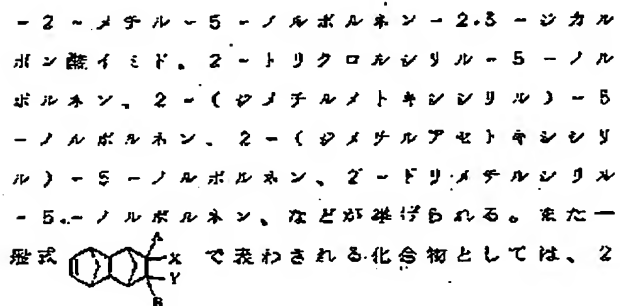 -2-メチル-5-ノルボルネン-2.3-ジカル
ボン酸イミド、2-トリクロルシリル-5-ノル
ボルネン、2-(ジメチルメトキシシリル)-5
-ノルボルネン、2-(ジメチルアセトキシシリ
ル)-5-ノルボルネン、2-トリメチルシリル
-5-ノルボルネン、などが挙げられる。また一
般式 A X Y B で表わされる化合物としては、2